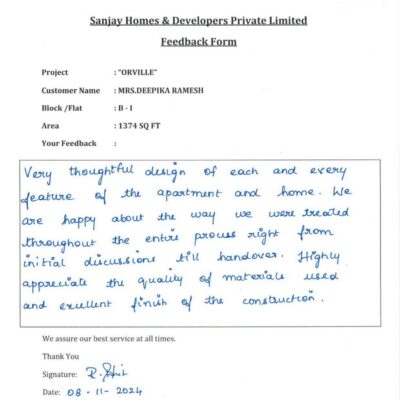 Sanjay Homes & Developers Private Limited
Feedback Form
Project : "ORVILLE"
Customer Name : MRS.DEEPIKA RAMESH
Block /Flat : B - I
Area : 1374 SQ FT
Your Feedback :
Very thoughtful design of each and every
feature of the apartment and home. We
are happy about the way we were treated
throughout the entire process right from
initial discussions till handover. Highly
appreciate the quality of materials used
and excellent finish of the construction.
We assure our best service at all times.
Thank You
Signature:
Date: 08 - 11 - 2024